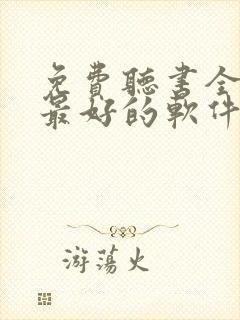 免費聽書全
最好的軟件
游蕩火